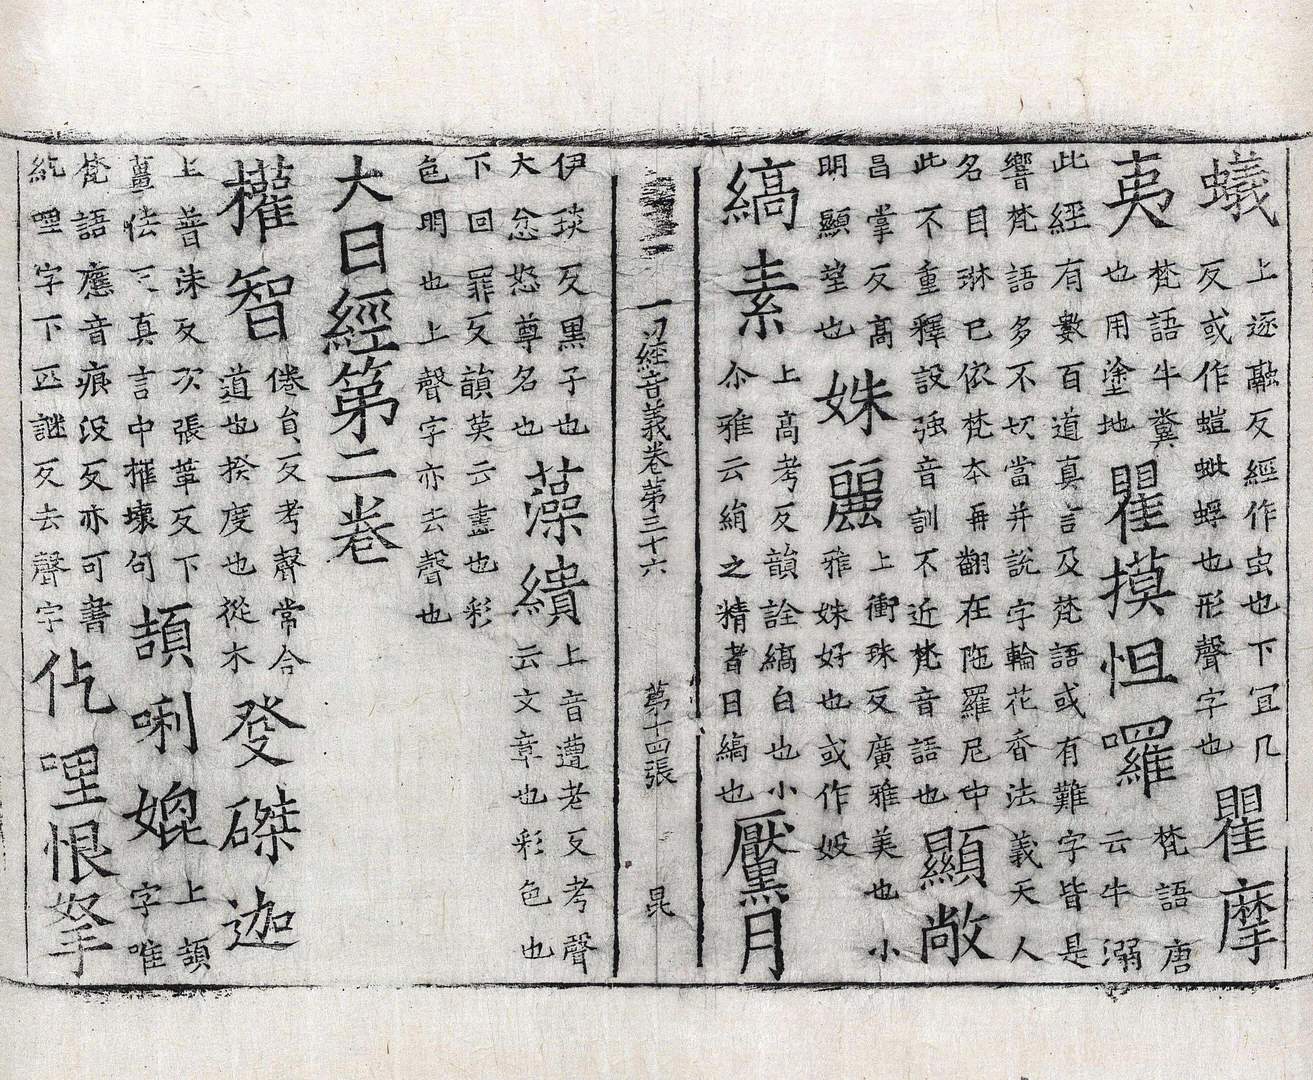 蟻
上逐融反經作虫也下冝几
反或作螘蚍蜉也形聲字也
瞿摩
夷
梵語牛糞
也用塗地
瞿摸怛囉
梵語唐
云牛溺
此經有數百道真言及梵語或有難字皆是
響梵語多不切當并説字輪花香法義天人
名目琳已依梵本再翻在陁羅尼中
此不重釋設強音訓不近梵音語也
顯敞
昌掌反髙
明顯望也
姝麗
上衝珠反廣雅美也小
雅姝好也或作
縞素
上髙考反韻詮縞白也小
尒雅云絹之精者曰縞也
黶月
一切經音義卷第三十六 第十四張 昆
伊琰反黒子也
大忿怒尊名也
藻繢
上音遭老反考聲
云文章也彩色也
下回罪反韻英云畫也彩
色明也上聲字亦去聲也
大日經第二卷
權智
倦貟反考聲常合
道也揆度也從木
發磔迦
上普沫反次張革反下
薑佉三真言中摧壞句
頞唎媲
上頞
字唯
梵語應音痕没反亦可書
紇哩字下匹謎反去聲字
仡哩恨拏